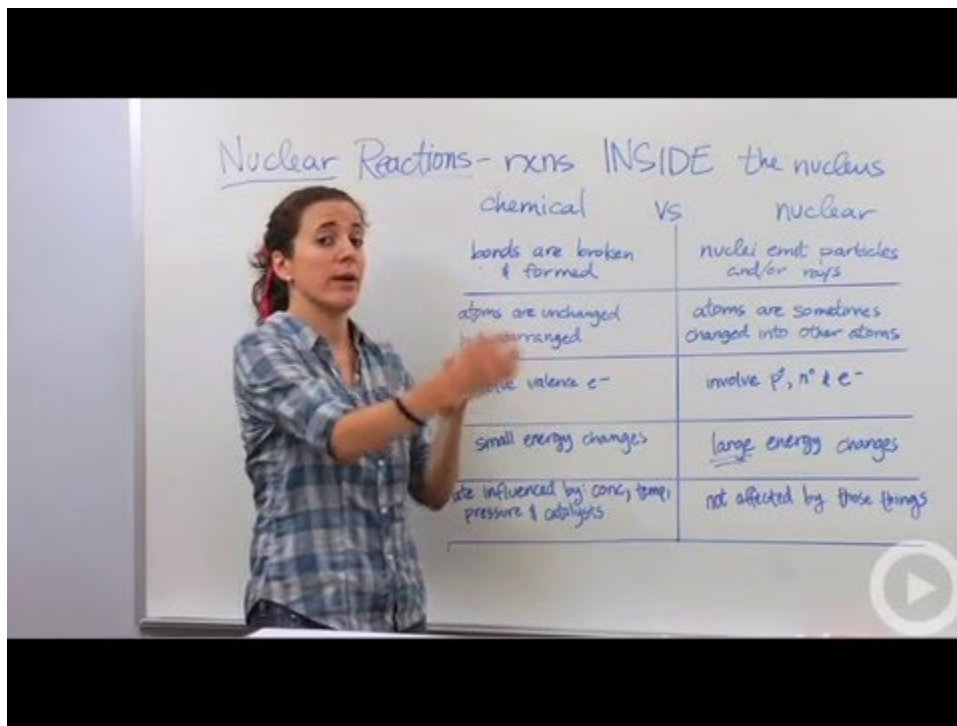 Nuclear Reactions - rxns INSIDE the nucleus
chemical vs nuclear
bonds are broken
& formed
nuclei emit particles
and/or rays
atoms are unchanged
arranged
atoms are sometimes
changed into other atoms
valence e⁻
involve p⁺, n° & e⁻
small energy changes
large energy changes
influenced by: conc, temp,
pressure & catalysts
not affected by those things